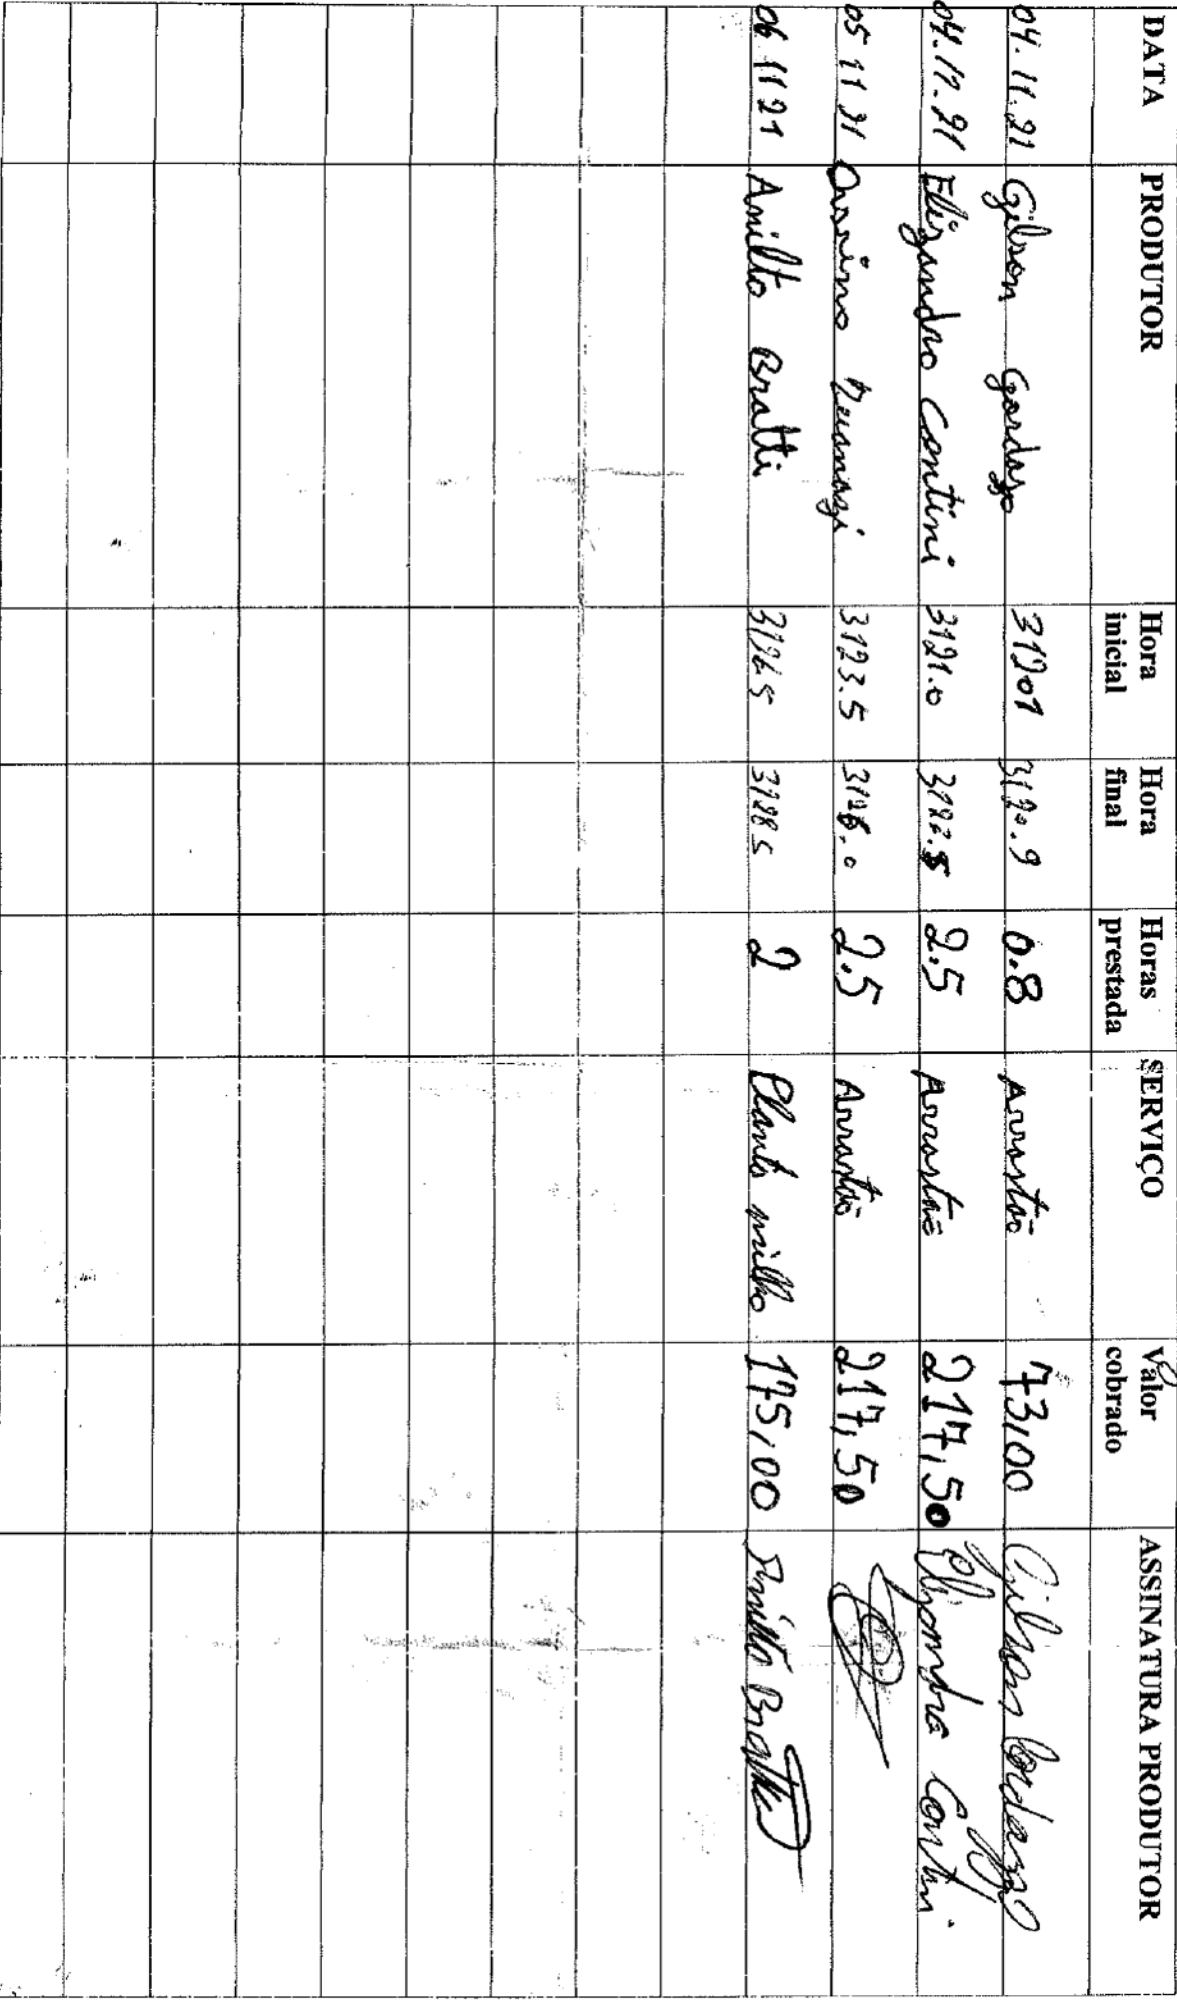 DATA PRODUTOR Hora inicial Hora final Horas prestada SERVIÇO Valor cobrado ASSINATURA PRODUTOR
04.11.21 Gilson Gordazo 31201 3120.9 0.8 Arrastão 73,00 Gilson Cordazzo
04.11.21 Elizandro Contini 3121.0 3123.5 2.5 Arrastão 217,50 Elizandro Contini
05 11 21 3123.5 3126.0 2.5 Arrastão 217,50
06 11 21 Amilto Bratti 31265 31285 2 Planta milho 175,00 Amilto Bratti